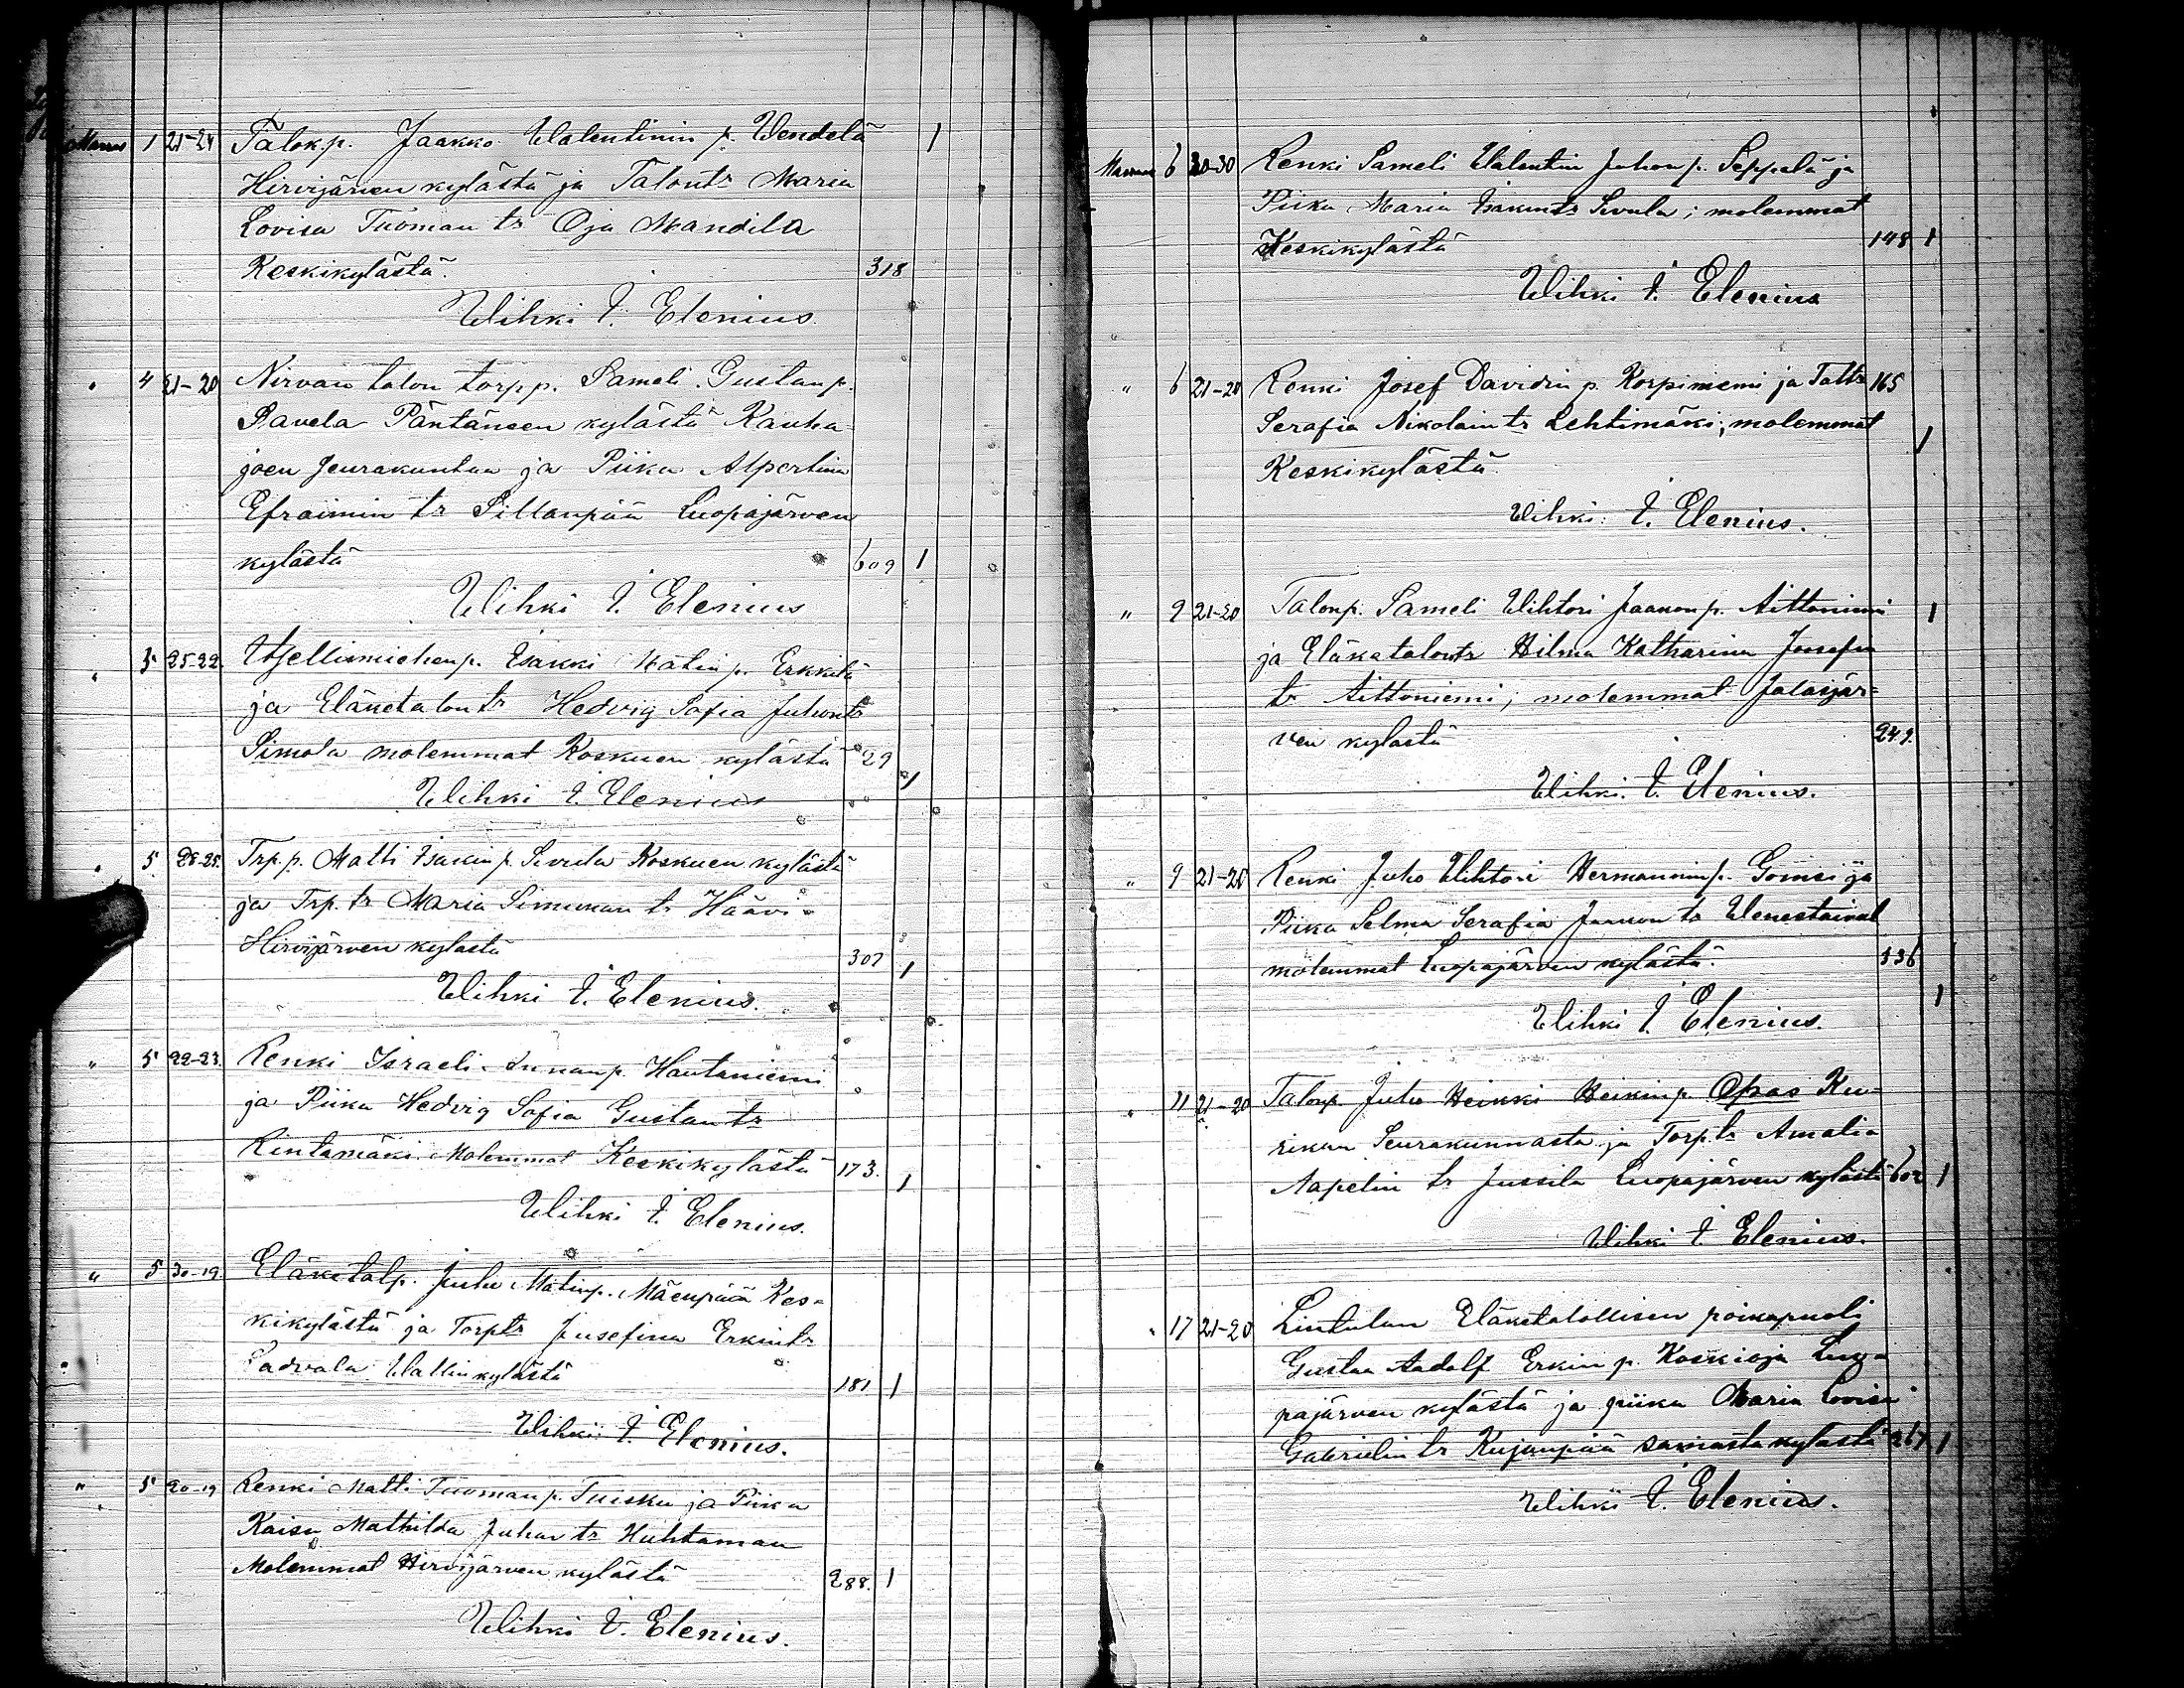 Marras 1 21-24 Talok.p. Jaakko Walentinin p. Wendelä 1
Hirvijärven kylästä ja Talontr Maria
Lovisa Tuoman tr Oja Mandila
Keskikylästä. 318
Wihki I. Elenius
" 4 21-20 Nirvan talon torp p. Sameli Gustan p.
Pavela Päntäneen kylästä Kauha-
joen seurakuntaa ja Piika Alpertiina
Efraimin tr Sillanpää Luopajärven
kylästä 609 1
Wihki I. Elenius
" 5 25-22. Itsellismiehen p. Isakki Matin p. Erkkilä
ja Eläketalon tr Hedvig Sofia Juhontr
Simola molemmat Koskuen kylästä 29
1
Wihki I. Elenius
" 5. 28-25. Trp. p. Matti Isakin p. Sivula Koskuen kylästä
ja Trp. tr Maria Simunan tr Häävi
Hirvijärven kylästä 307 1
Wihki I. Elenius.
" 5 22-23. Renki Israeli p. Hautaniemi
ja Piika Hedvig Sofia Gustan tr
Rintamäki. Molemmat Keskikylästä 173. 1
Wihki I. Elenius.
" 5 30-19 Eläketalp. Juho Matinp. Mäenpää Kes-
kikylästä ja Torptr Jusefina Erkintr
Ladvala Wallinkylästä
181 1
Wihki I. Elenius.
" 5 20-19 Renki Matti Tuoman p. Tuisku ja Piika
Kaisa Mathilda Juhan tr Huhtaman
Molemmat Hirvijärven kylästä 288. 1
Wihki I. Elenius.
Marras 6 30-30 Renki Sameli Walentin Juhon p. Seppelä ja
Piika Maria Isakintr Sivula; molemmat
Keskikylästä 148 1
Wihki I. Elenius
" 6 21-20 Renki Josef Davidin p. Korpiniemi ja Taltr 165
Serafia Nikolain tr Lehtimäki; molemmat
1
Keskikylästä.
Wihki: I. Elenius.
" 9 21-20 Talonp. Sameli Wihtori Jaakon p. Aittoniemi 1
ja Eläketalontr Hilma Katharina Joosefin
tr Aittoniemi; molemmat Jalasjär-
ven kylästä 249.
Wihki. I. Elenius.
" 9 21-20 Renki Juho Wihtori Hermannin p. Gomsi ja
Piika Selma Serafia Jaakon tr Wenestaival
molemmat Luopajärven kylästä. 536
1
Wihki I. Elenius.
" 11 21-20 Talonp. Juho Heikki Heikin p. Opas Ku-
rikan Seurakunnasta ja Torp.tr Amalia
Aapelin tr Jussila Luopajärven kylästä 602 1
Wihki I. Elenius.
" 17 21-20 Lintulan Eläketalollisen poikapuoli
Gustaa Aadolf Erkin p. Koskioja Luo-
pajärven kylästä ja piika Maria Lovisa
Gabrielin tr Kujanpää samasta kylästä 267 1
Wihki I. Elenius.